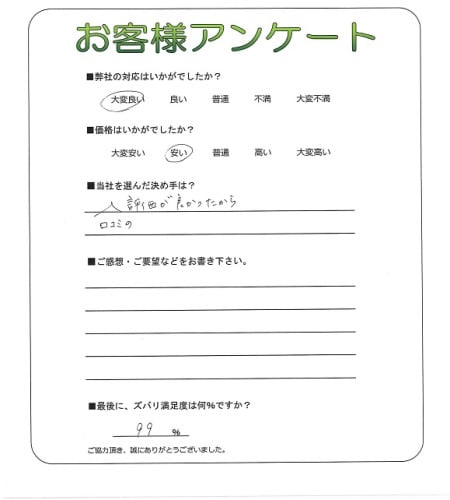 お客様アンケート
■弊社の対応はいかがでしたか？
大変良い 良い 普通 不満 大変不満
■価格はいかがでしたか？
大変安い 安い 普通 高い 大変高い
■当社を選んだ決め手は？
評価が良かったから
口コミの
■ご感想・ご要望などをお書き下さい。
■最後に、ズバリ満足度は何%ですか？
99 %
ご協力頂き、誠にありがとうございました。